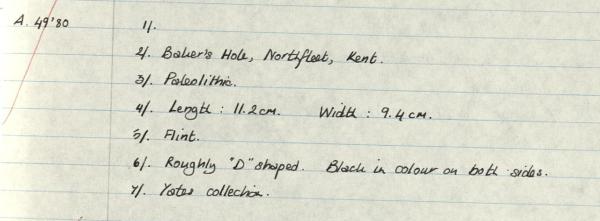 A. 49'80 1/.
2/. Baker's Hole, Northfleet, Kent.
3/. Paleolithic.
4/. Length : 11.2cm. Width : 9.4cm.
5/. Flint.
6/. Roughly "D" shaped. Black in colour on both sides.
7/. Yates collection.